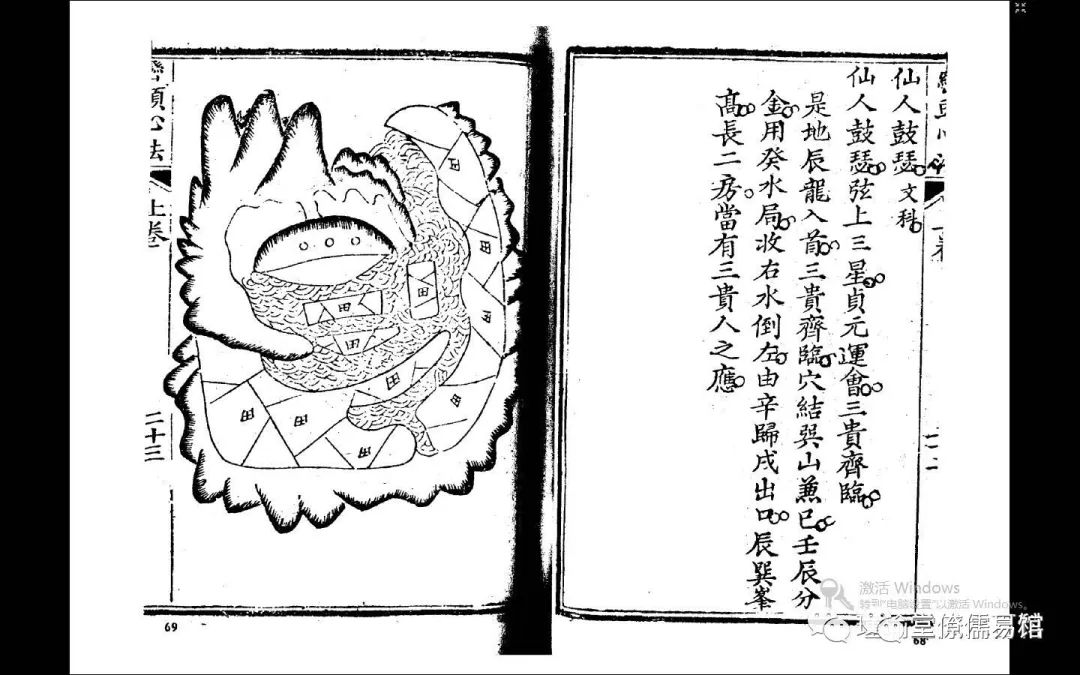 仙人鼓瑟 文科
仙人鼓瑟弦上三星貞元運會三貴齊臨
是地辰龍入首三貴齊臨穴結巽山兼巳壬辰分
金用癸水局收右水倒左由辛歸戌出口辰巽峯
高長二房當有三貴人之應
68
巒頭心法
上卷
二十三
田
田
田
田
田
田
田
田
田
田
69
激活 Windows
转到"电脑设置"以激活 Windows。
儒易馆